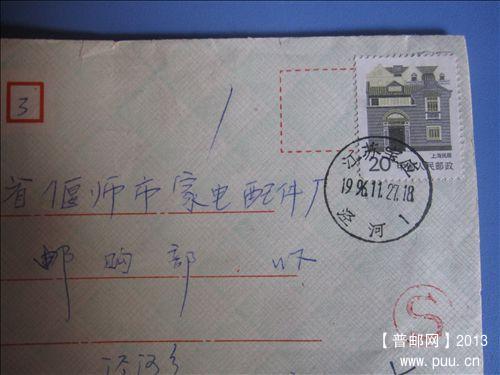 3
20 中国人民邮政
上海民居
江苏宝应
1996.11.27.18
泾河 1
省偃师市家电配件厂
邮购部 收
泾河乡
S
【普邮网】2013
www.puu.cn